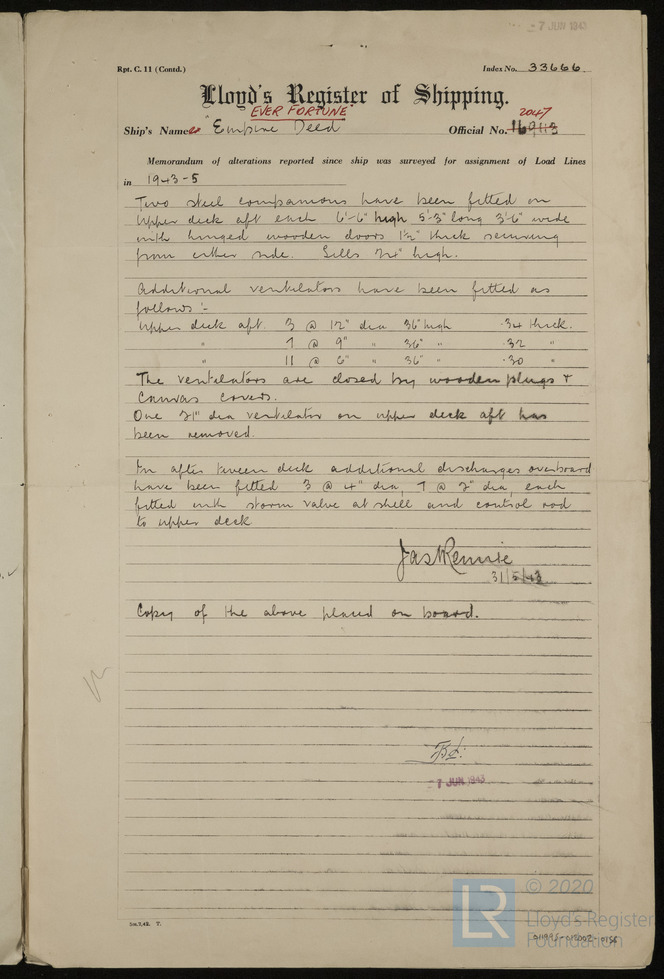 7 JUN 1943
Rpt. C. 11 (Contd.) Index No. 33666
Lloyd's Register of Shipping.
EVER FORTUNE 2047
Ship's Name "Empire Deed Official No.
Memorandum of alterations reported since ship was surveyed for assignment of Load Lines
in 1943-5
Two steel companions have been fitted on
Upper deck aft each 6'-6" high 5'-3" long 3'-6" wide
with hinged wooden doors 1½" thick securing
from either side. Sills 24" high.
Additional ventilators have been fitted as
follows :-
Upper deck aft. 3 @ 12" dia 36" high .34 thick.
" 7 @ 9" " 36" " .32 "
" 11 @ 6" " 36" " .30 "
The ventilators are closed by wooden plugs +
Canvas covers.
One 21" dia ventilator on upper deck aft has
been removed.
In after tween deck additional discharges overboard
have been fitted 3 @ 4" dia, 7 @ 2" dia, each
fitted with storm valve at shell and control rod
to upper deck
Jas Rennie
31/5/43
Copy of the above placed on board.
7 JUN 1943
5m.7,42. T.
LR
© 2020
Lloyd's Register
Foundation